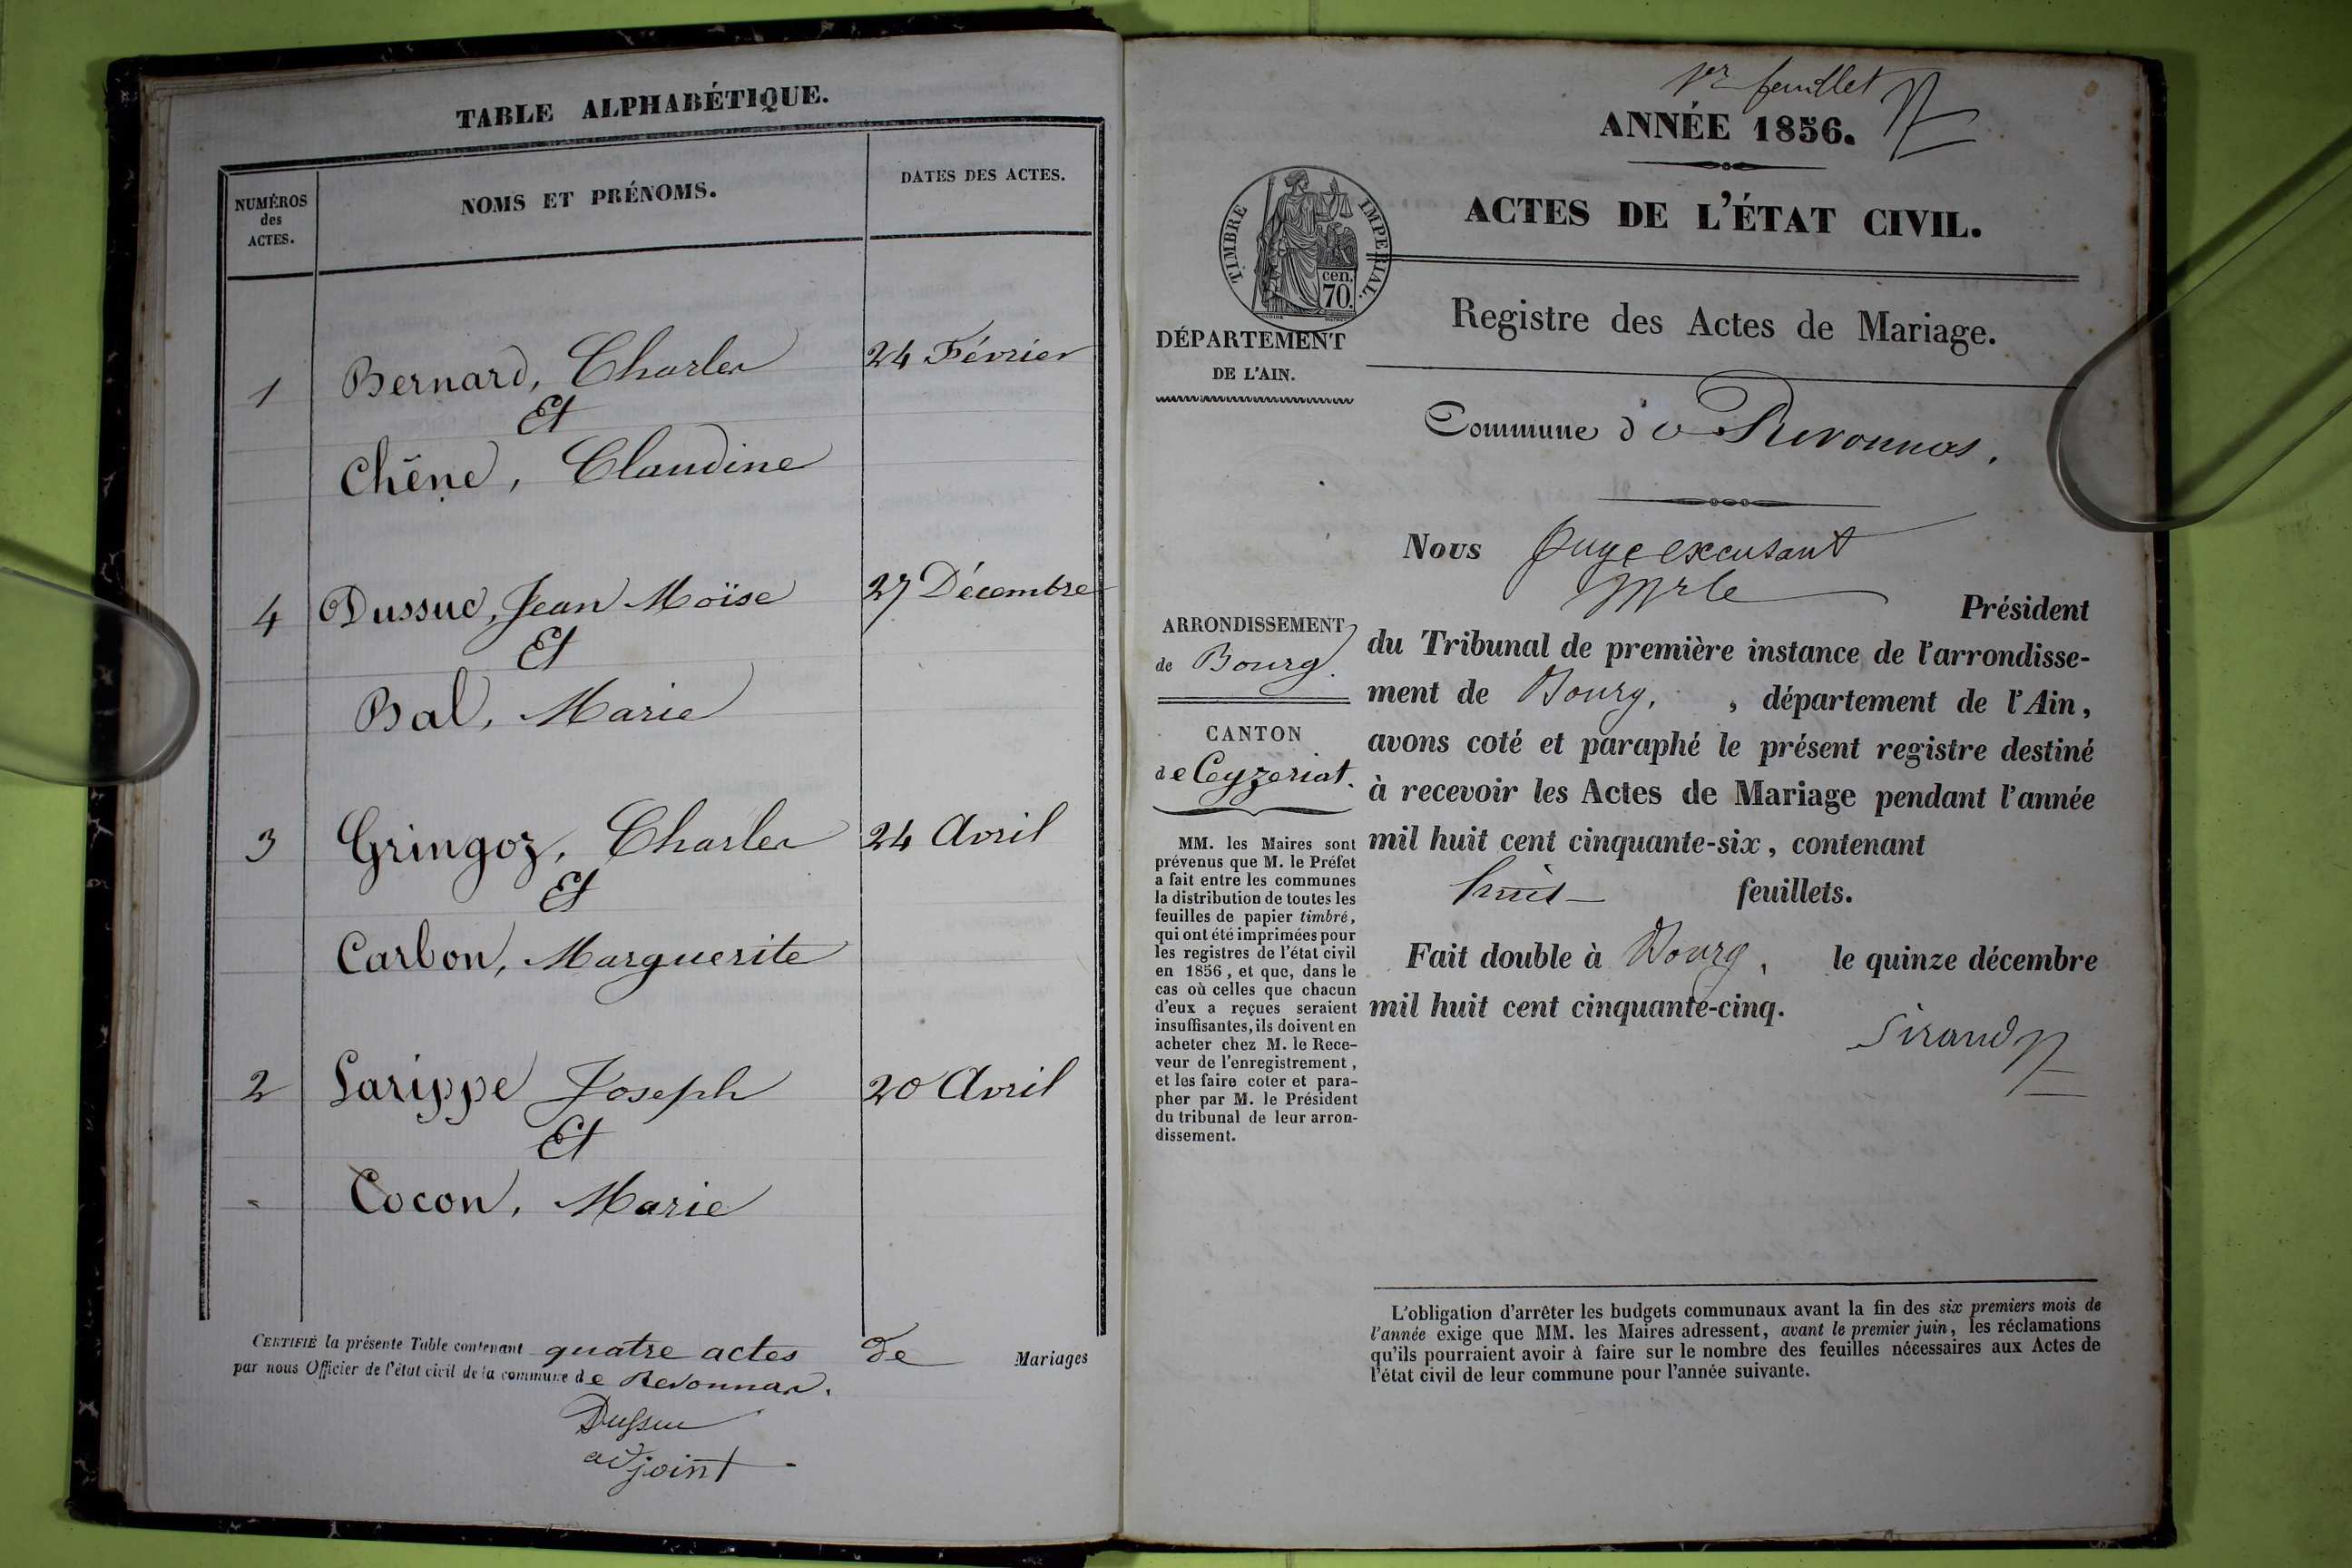 TABLE ALPHABÉTIQUE.
NUMÉROS
des
ACTES.
NOMS ET PRÉNOMS.
DATES DES ACTES.
1 Bernard, Charles 24 Février
Et
Chêne, Claudine
4 Dussuc, Jean Moïse 27 Décembre
Et
Bal, Marie
3 Gringoz, Charles 24 Avril
Et
Carbon, Marguerite
2 Larippe Joseph 20 Avril
Et
Cocon, Marie
CERTIFIÉ la présente Table contenant quatre actes de Mariages
par nous Officier de l'état civil de la commune de Revonnas.
Dussuc
adjoint
1er feuillet
ANNÉE 1856.
ACTES DE L'ÉTAT CIVIL.
TIMBRE IMPERIAL.
cen.
70.
DÉPARTEMENT
DE L'AIN.
Registre des Actes de Mariage.
Commune de Revonnas.
ARRONDISSEMENT
de Bourg.
CANTON
de Ceyzeriat.
MM. les Maires sont
prévenus que M. le Préfet
a fait entre les communes
la distribution de toutes les
feuilles de papier timbré,
qui ont été imprimées pour
les registres de l'état civil
en 1856, et que, dans le
cas où celles que chacun
d'eux a reçues seraient
insuffisantes, ils doivent en
acheter chez M. le Rece-
veur de l'enregistrement,
et les faire coter et para-
pher par M. le Président
du tribunal de leur arron-
dissement.
Nous Juge excusant
Mr le
Président
du Tribunal de première instance de l'arrondisse-
ment de Bourg, , département de l'Ain,
avons coté et paraphé le présent registre destiné
à recevoir les Actes de Mariage pendant l'année
mil huit cent cinquante-six, contenant
huit feuillets.
Fait double à Bourg, le quinze décembre
mil huit cent cinquante-cinq.
Sirand
L'obligation d'arrêter les budgets communaux avant la fin des six premiers mois de
l'année exige que MM. les Maires adressent, avant le premier juin, les réclamations
qu'ils pourraient avoir à faire sur le nombre des feuilles nécessaires aux Actes de
l'état civil de leur commune pour l'année suivante.